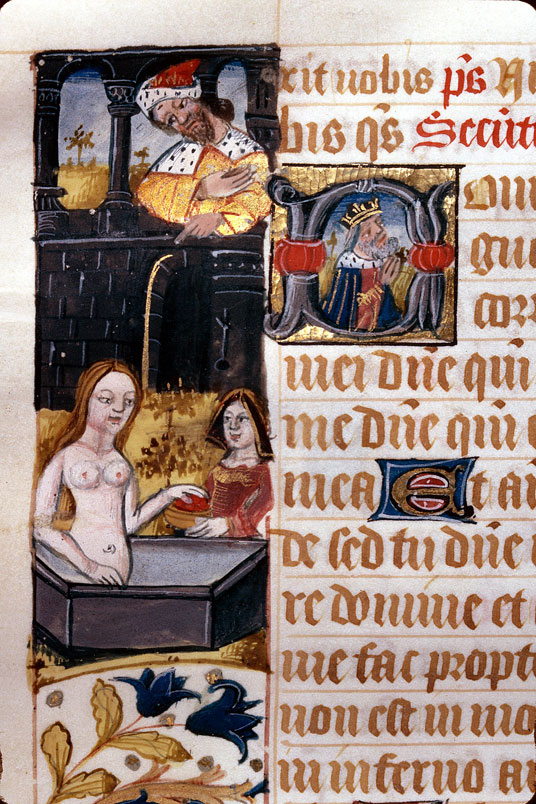 xit uobis p̃s
bis q̃s Secūt
Domi
gu
corr
mei dñe qui
me dñe qm̃
mea Et an
de sed tu dñe
re domine et
me fac propt
non est in mo
in inferno a